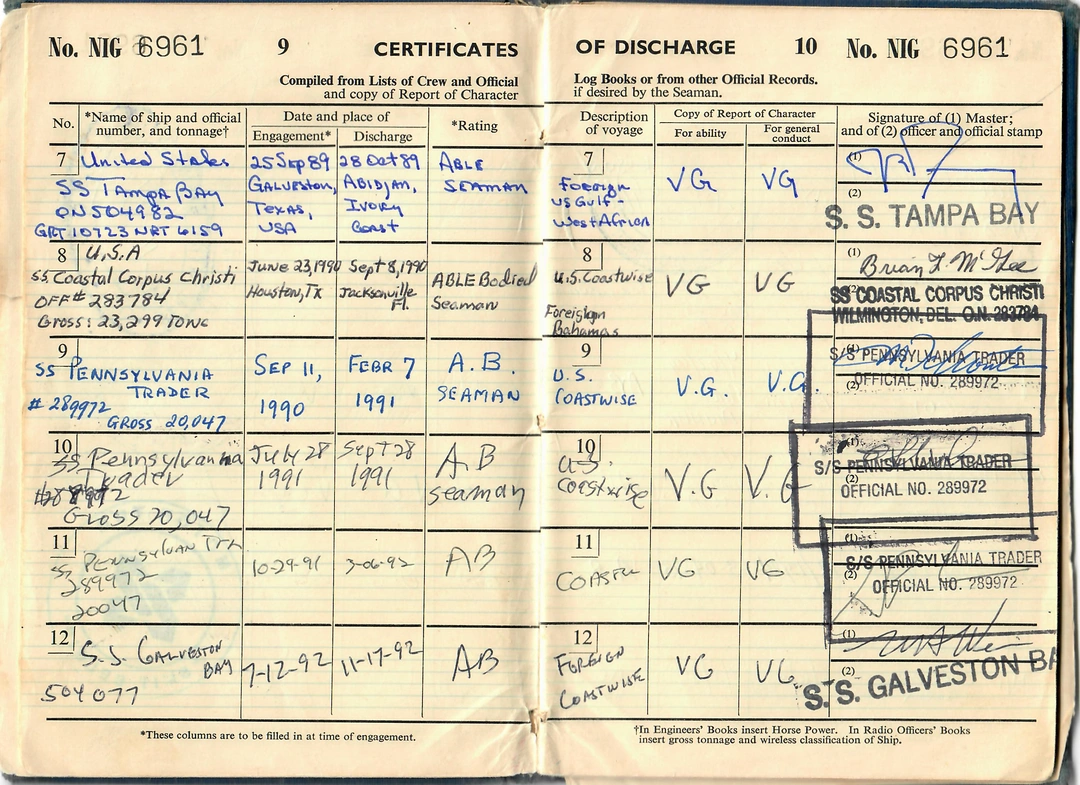 No. NIG 6961 9 CERTIFICATES OF DISCHARGE 10 No. NIG 6961
Compiled from Lists of Crew and Official Log Books or from other Official Records.
and copy of Report of Character if desired by the Seaman.
No.
*Name of ship and official
number, and tonnage†
Date and place of
Engagement* Discharge
*Rating
Description
of voyage
Copy of Report of Character
For ability
For general
conduct
Signature of (1) Master;
and of (2) officer and official stamp
7
United States
SS TAMPA BAY
ON 504982
GRT 10723 NRT 6159
25 Sep 89
GALVESTON,
TEXAS,
USA
28 Oct 89
ABIDJAN,
IVORY
Coast
ABLE
SEAMAN
7
FOREIGN
US GULF-
West African
VG
VG
(1)
(2)
S. S. TAMPA BAY
8
U.S.A
SS. Coastal Corpus Christi
OFF# 283784
Gross: 23,299 Tons
June 23, 1990
Houston, Tx
Sept 8, 1990
Jacksonville
Fl.
ABLE Bodied
Seaman
8
U.S. Coastwise
Foreign
Bahamas
VG
VG
(1)
Brian F. McGee
(2)
SS COASTAL CORPUS CHRISTI
WILMINGTON, DEL. O.N. 283784
9
SS PENNSYLVANIA
TRADER
# 289972
GROSS 20,047
SEP 11,
1990
FEBR 7
1991
A.B.
SEAMAN
9
U.S.
COASTWISE
V.G.
V.G.
(1)
S/S PENNSYLVANIA TRADER
(2)
OFFICIAL NO. 289972
10
SS Pennsylvania
Trader
#289972
Gross 20,047
July 28
1991
Sept 28
1991
AB
seaman
10
U.S.
Coastwise
V.G
V.G
(1)
S/S PENNSYLVANIA TRADER
(2)
OFFICIAL NO. 289972
11
SS PENNSYLVAN TRA
289972
20047
10-29-91
3-06-92
AB
11
COASTAL
VG
VG
(1)
S/S PENNSYLVANIA TRADER
(2)
OFFICIAL NO. 289972
12
S.S. GALVESTON
BAY
504077
7-12-92
11-17-92
AB
12
FOREIGN
COASTWISE
VG
VG
(1)
(2)
S. S. GALVESTON BA
*These columns are to be filled in at time of engagement.
†In Engineers' Books insert Horse Power. In Radio Officers' Books
insert gross tonnage and wireless classification of Ship.